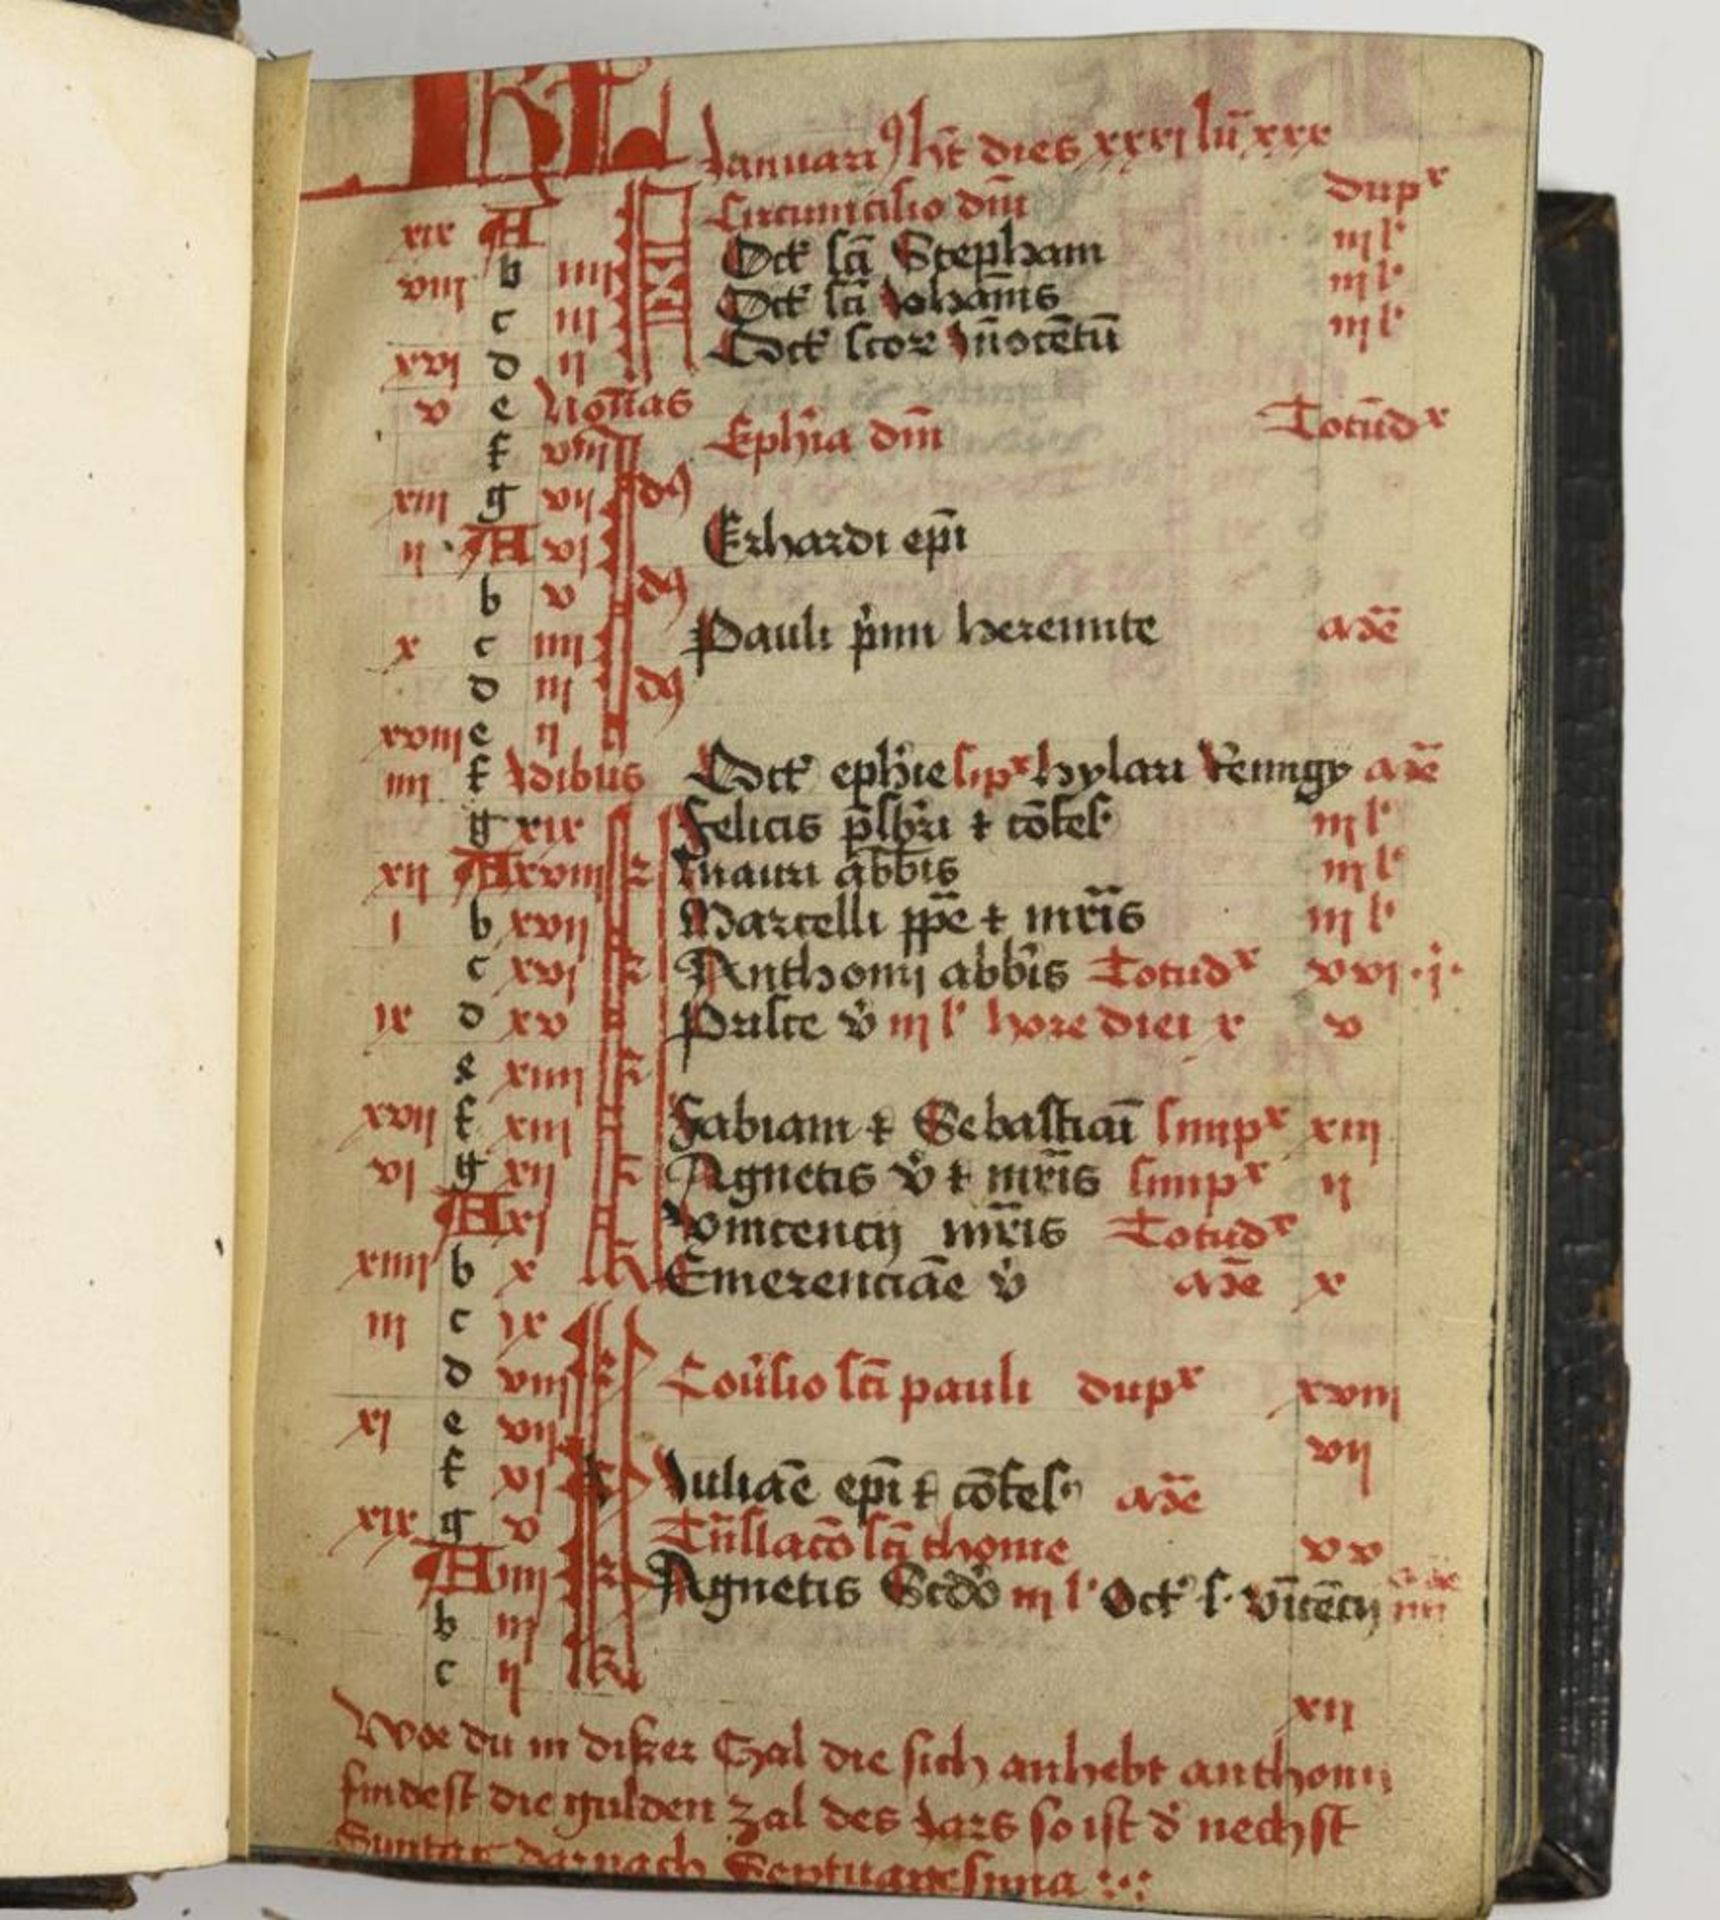 KL Januari⁹ ht dies xxxi lū xxx
xix A Circumcisio dm̄ dupˣ
viii b iiii Oct' scī Stephani iii l'
c iii Oct' scī Johānis iii l'
xvi d ii Oct' scor Īnocētū iii l'
v e Nonas
f viii Ephīa dm̄ Totūdˣ
xiii g vii d9
ii A vi Erhardi epī
b v d9
x c iiii Pauli pimi heremite
d iii d9
xviii e ii
iiii f Idibus Oct' ephie sipˣ hylari Remigy
g xix Felicis psbri ⁊ cōfes' iii l'
xii A xviii Mauri abbis iii l'
i b xvii Marcelli ppe ⁊ mris iii l'
c xvi Anthonij abbis Totudˣ xvi · j ·
ix d xv Prisce v iii l' hore diei x v
e xiiii
xvii f xiii Fabiani ⁊ Sebastiai simpˣ xiii
vi g xii Agnetis v ⁊ mris simpˣ ii
A xi Vincencij mris Totudˣ
xiiii b x Emerenciāe v x
iii c ix
d viii Cov'sio scī pauli dupˣ xviii
xi e vii vii
f vi Juliāe epī ⁊ cōfes'
xix g v Trāslacō scī thome xv
A iiii Agnetis Scdo iii l' Oct' s · Vīcēcij iiii
b iii
c ii
xii
Wor du in diser Zal die sich anhebt anthonij
findest die gulden zal des Jars so ist d' nechst
Suntag darnach Septuagesima